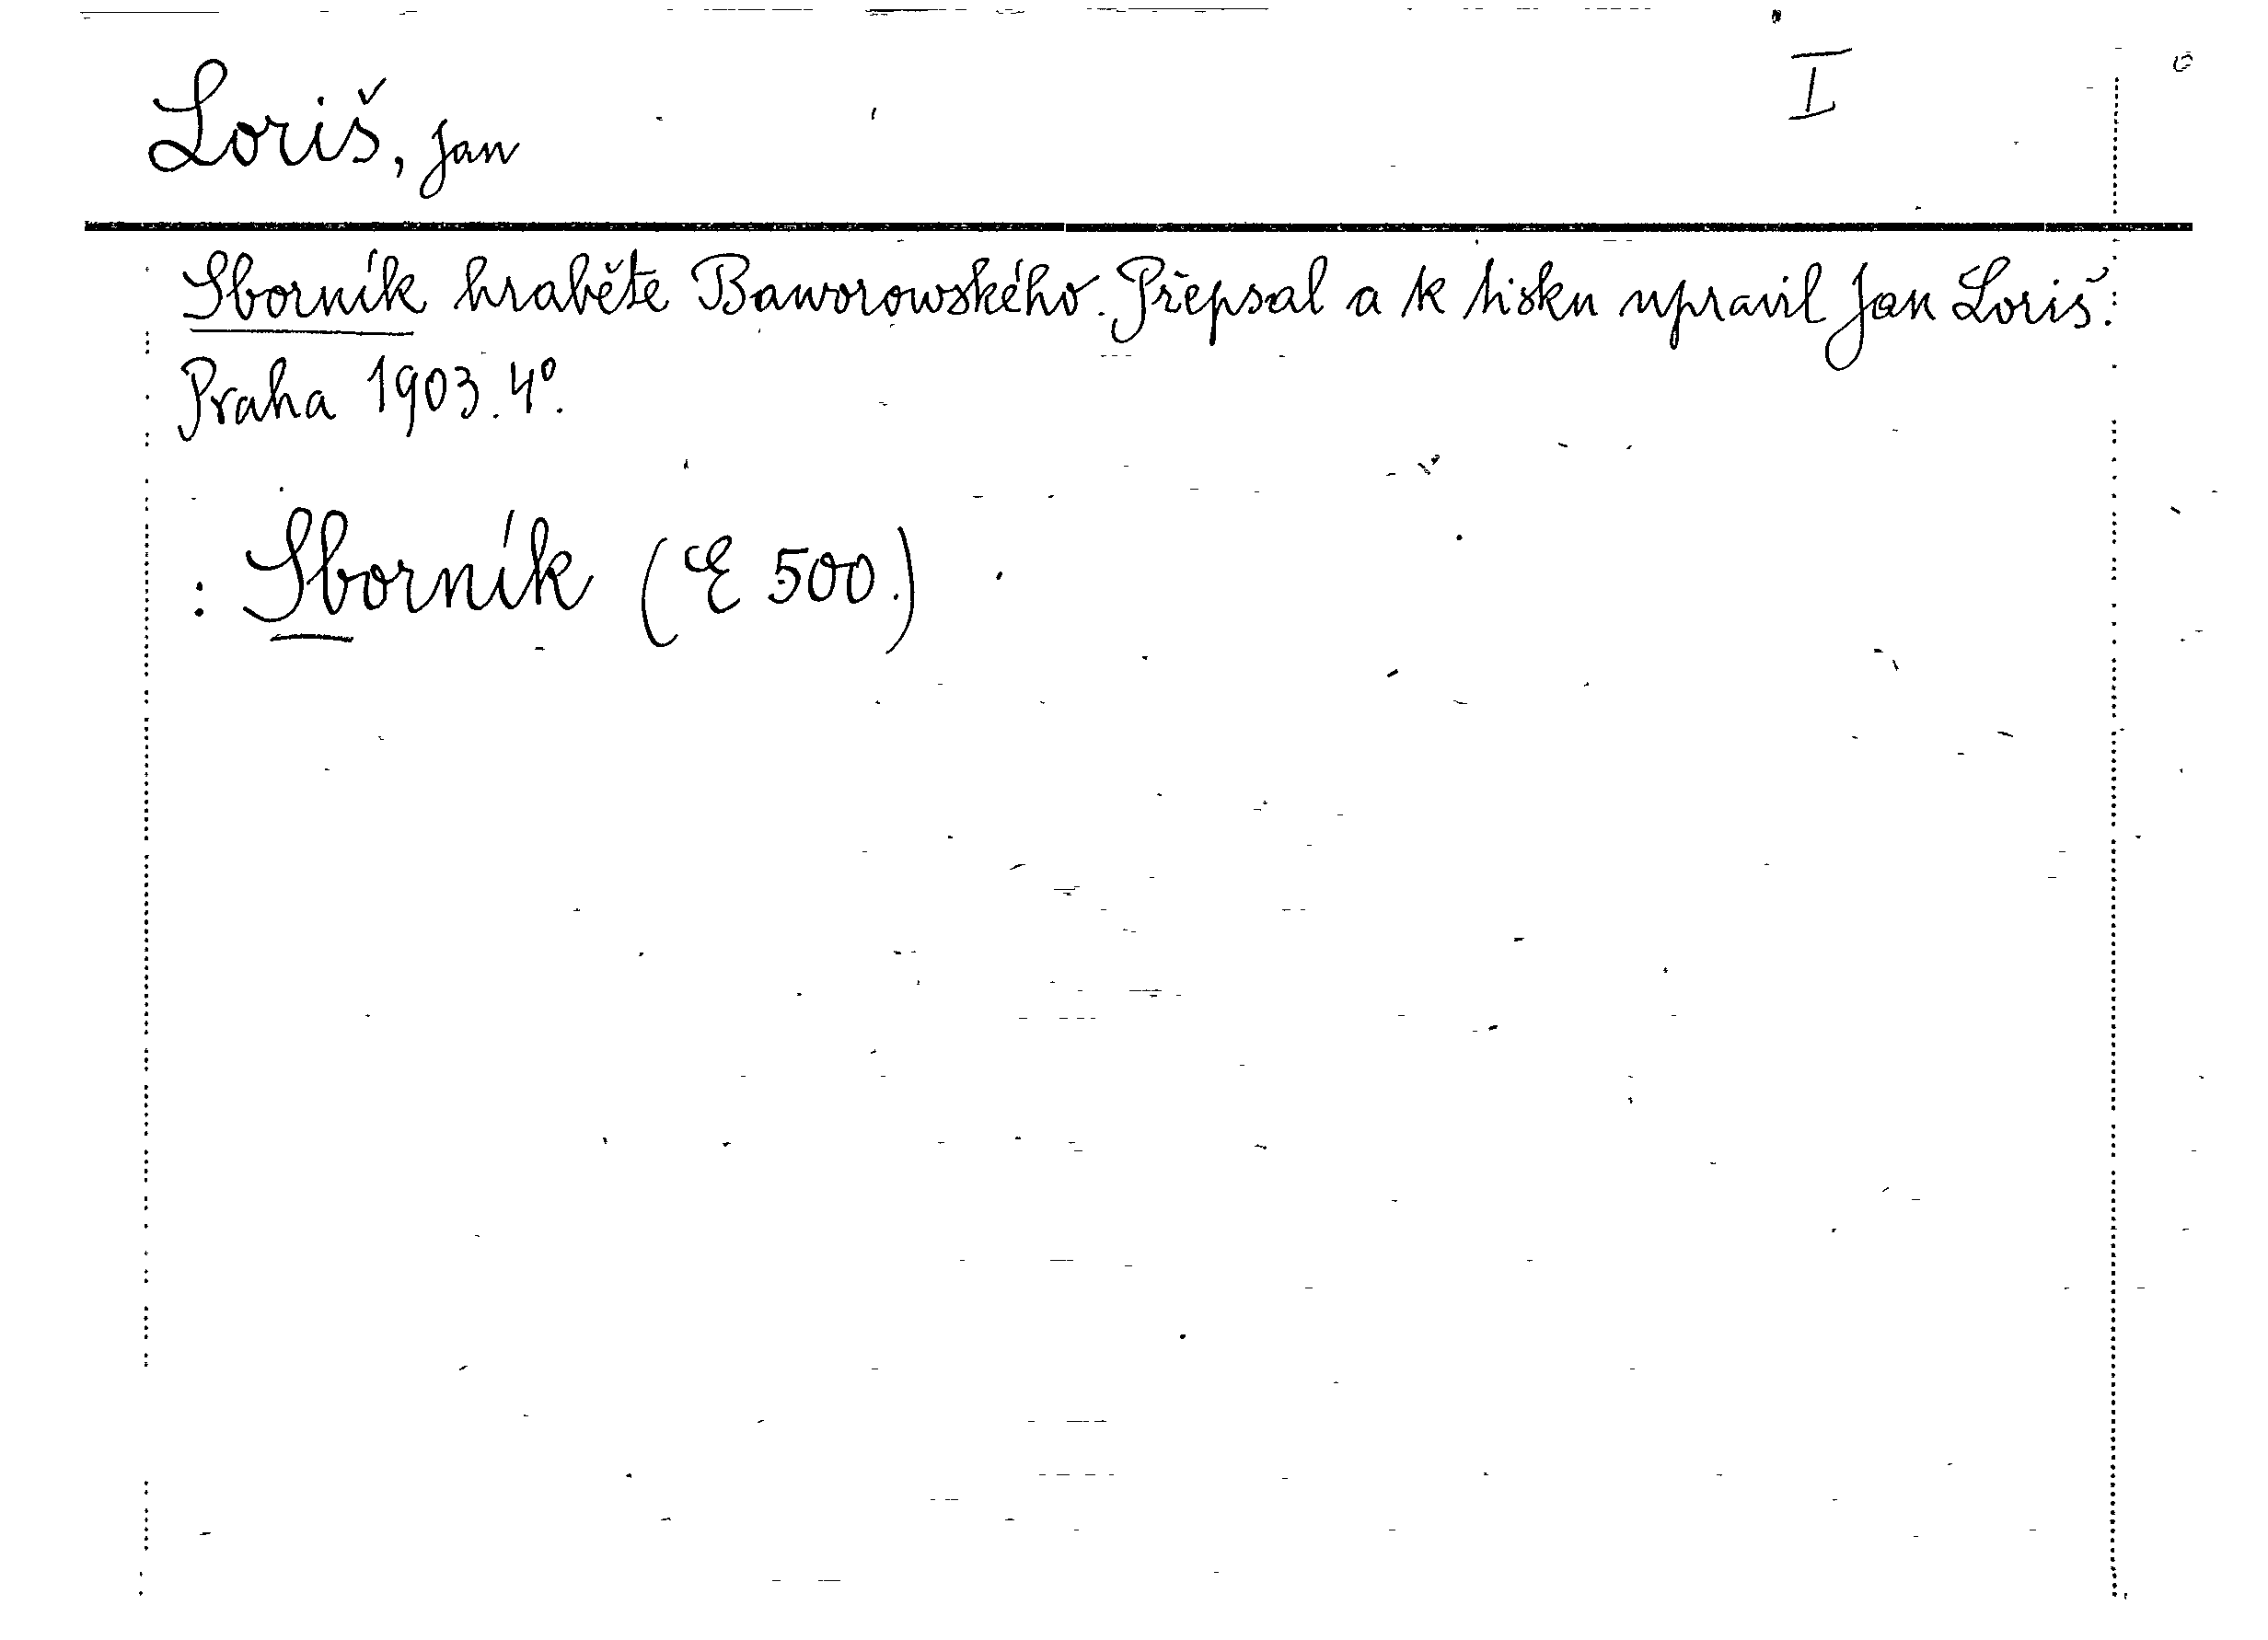 I
Loriš, Jan
Sborník hraběte Baworowského. Přepsal a k tisku upravil Jan Loriš.
Praha 1903. 4º.
: Sborník (E 500.)